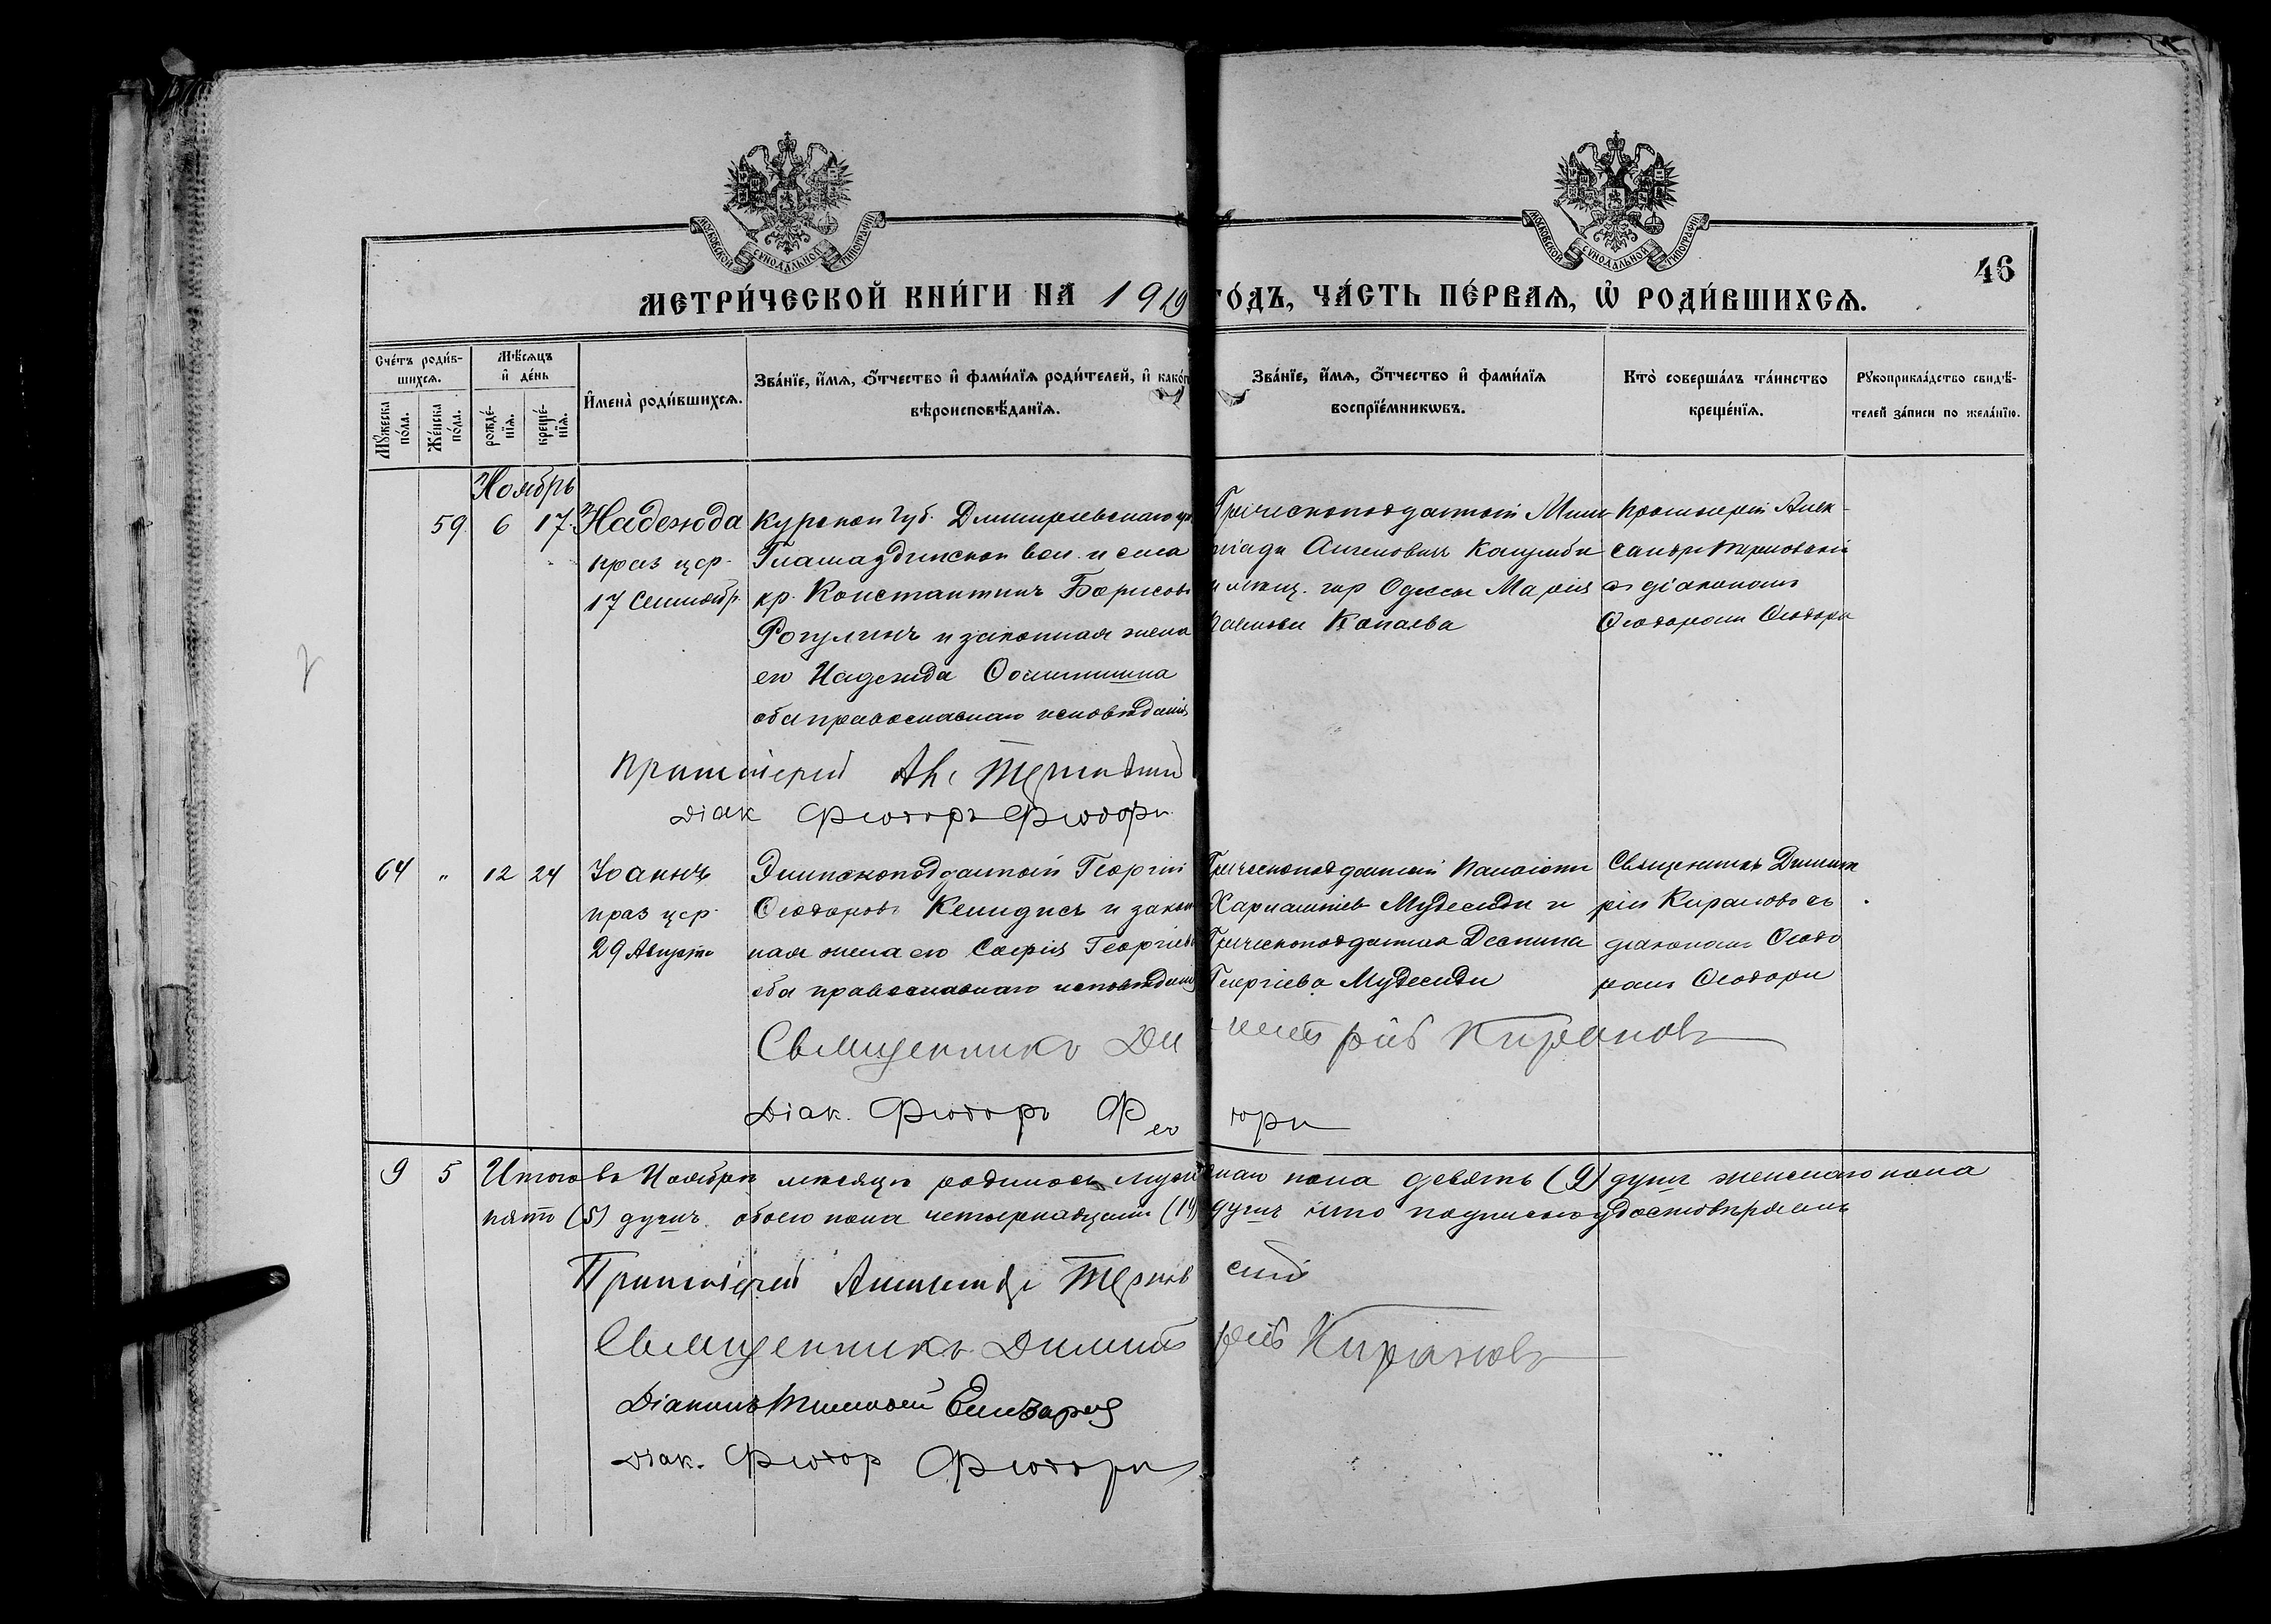 МОСКОВСКОЙ СѴНОДАЛЬНОЙ ТИПОГРАФІИ
МОСКОВСКОЙ СѴНОДАЛЬНОЙ ТИПОГРАФІИ
46
МЕТРИ́ЧЕСКОЙ КНИ́ГИ НА 1919 ГО́ДЪ, ЧА́СТЬ ПЕ́РВАѦ, Ѡ҆ РОДИ́ВШИХСѦ.
Сче́тъ роди́в-
шихсѧ.
Мꙋ́жеска
по́ла.
Же́нска
по́ла.
Мѣ́сѧцъ
и҆ де́нь
рожде́-
нїѧ.
креще́-
нїѧ.
И҆мена̀ роди́вшихсѧ.
Зва́нїе, и҆́мѧ, ѻ҆́тчество и҆ фами́лїѧ роди́телей, и҆ како́гѡ
вѣроисповѣ́данїѧ.
Зва́нїе, и҆́мѧ, ѻ҆́тчество и҆ фами́лїѧ
воспрїе́мникѡвъ.
Кто̀ соверша́лъ та́инство
креще́нїѧ.
Рꙋкоприкла́дство свидѣ́-
телей за́писи по жела́нїю.
Ноябрь
59. 6 17. Надежда
праз цер.
17 Сентябр.
Курской Губ. Дмитріевскаго
вол. и села
кр. Константинъ Борисовъ
Рогулинъ и законная жена
его Надежда
оба православнаго исповѣданія
Греческоподданный
и мѣщ. гор Одессы Марія
Протоіерей Алек-
сандръ Терновскій
съ діакономъ
Ѳеодоромъ Ѳеодори
Протоіерей Ал. Терновскій
Діак Ѳеодоръ Ѳеодори
64 " 12 24 Іоаннъ
праз цер.
29 Августа
Эллиноподданный Георгій
Ѳеодоровъ и закон
ная жена его Софія Георгіев
оба православнаго исповѣданія
Греческоподданный Панаіоти
Харлампіевъ Мудесиди и
Греческоподданная Деспина
Георгіева Мудесиди
Священникъ Димит
рій Кирановъ съ
діакономъ Ѳеодо
ромъ Ѳеодори
Священникъ Димитрій Кирановъ
Діак. Ѳеодоръ Ѳеодори
9 5 Итого въ Ноябрѣ мѣсяцѣ родилось мужескаго пола девять (9) душъ женскаго пола
пять (5) душъ. обоего пола четырнадцать (14) душъ что подписью удостовѣряемъ
Протоіерей Александръ Терновскій
Священникъ Димитрій Кирановъ
Діаконъ Тимофей
Діак. Ѳеодор Ѳеодори